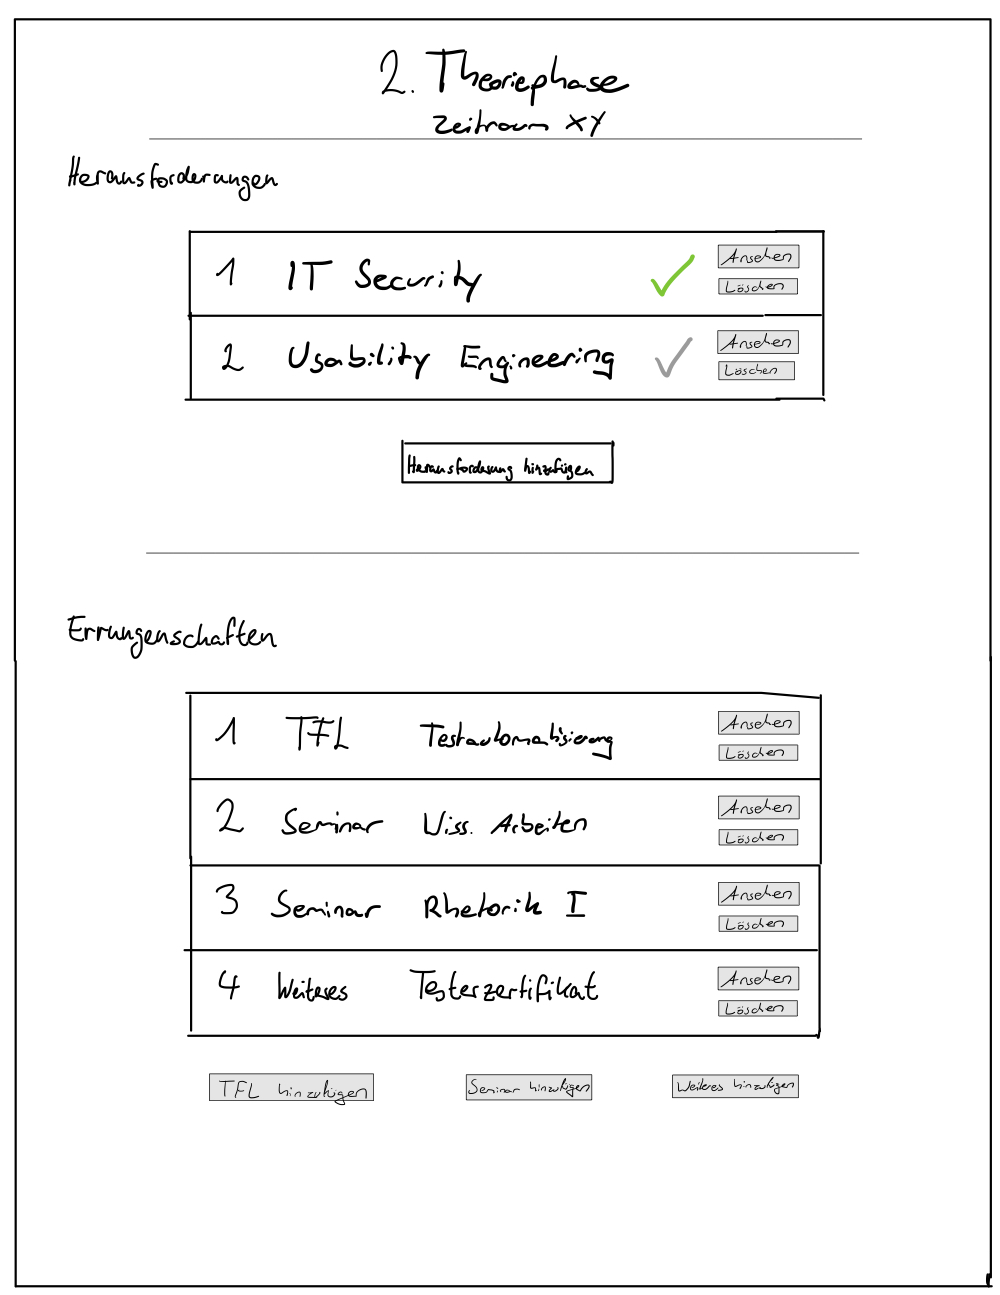 2. Theoriephase
Zeitraum XY
Herausforderungen
1 IT Security Ansehen
Löschen
2 Usability Engineering Ansehen
Löschen
Herausforderung hinzufügen
Errungenschaften
1 TFL Testautomatisierung Ansehen
Löschen
2 Seminar Wiss. Arbeiten Ansehen
Löschen
3 Seminar Rhetorik I Ansehen
Löschen
4 Weiteres Testerzertifikat Ansehen
Löschen
TFL hinzufügen Seminar hinzufügen Weiteres hinzufügen